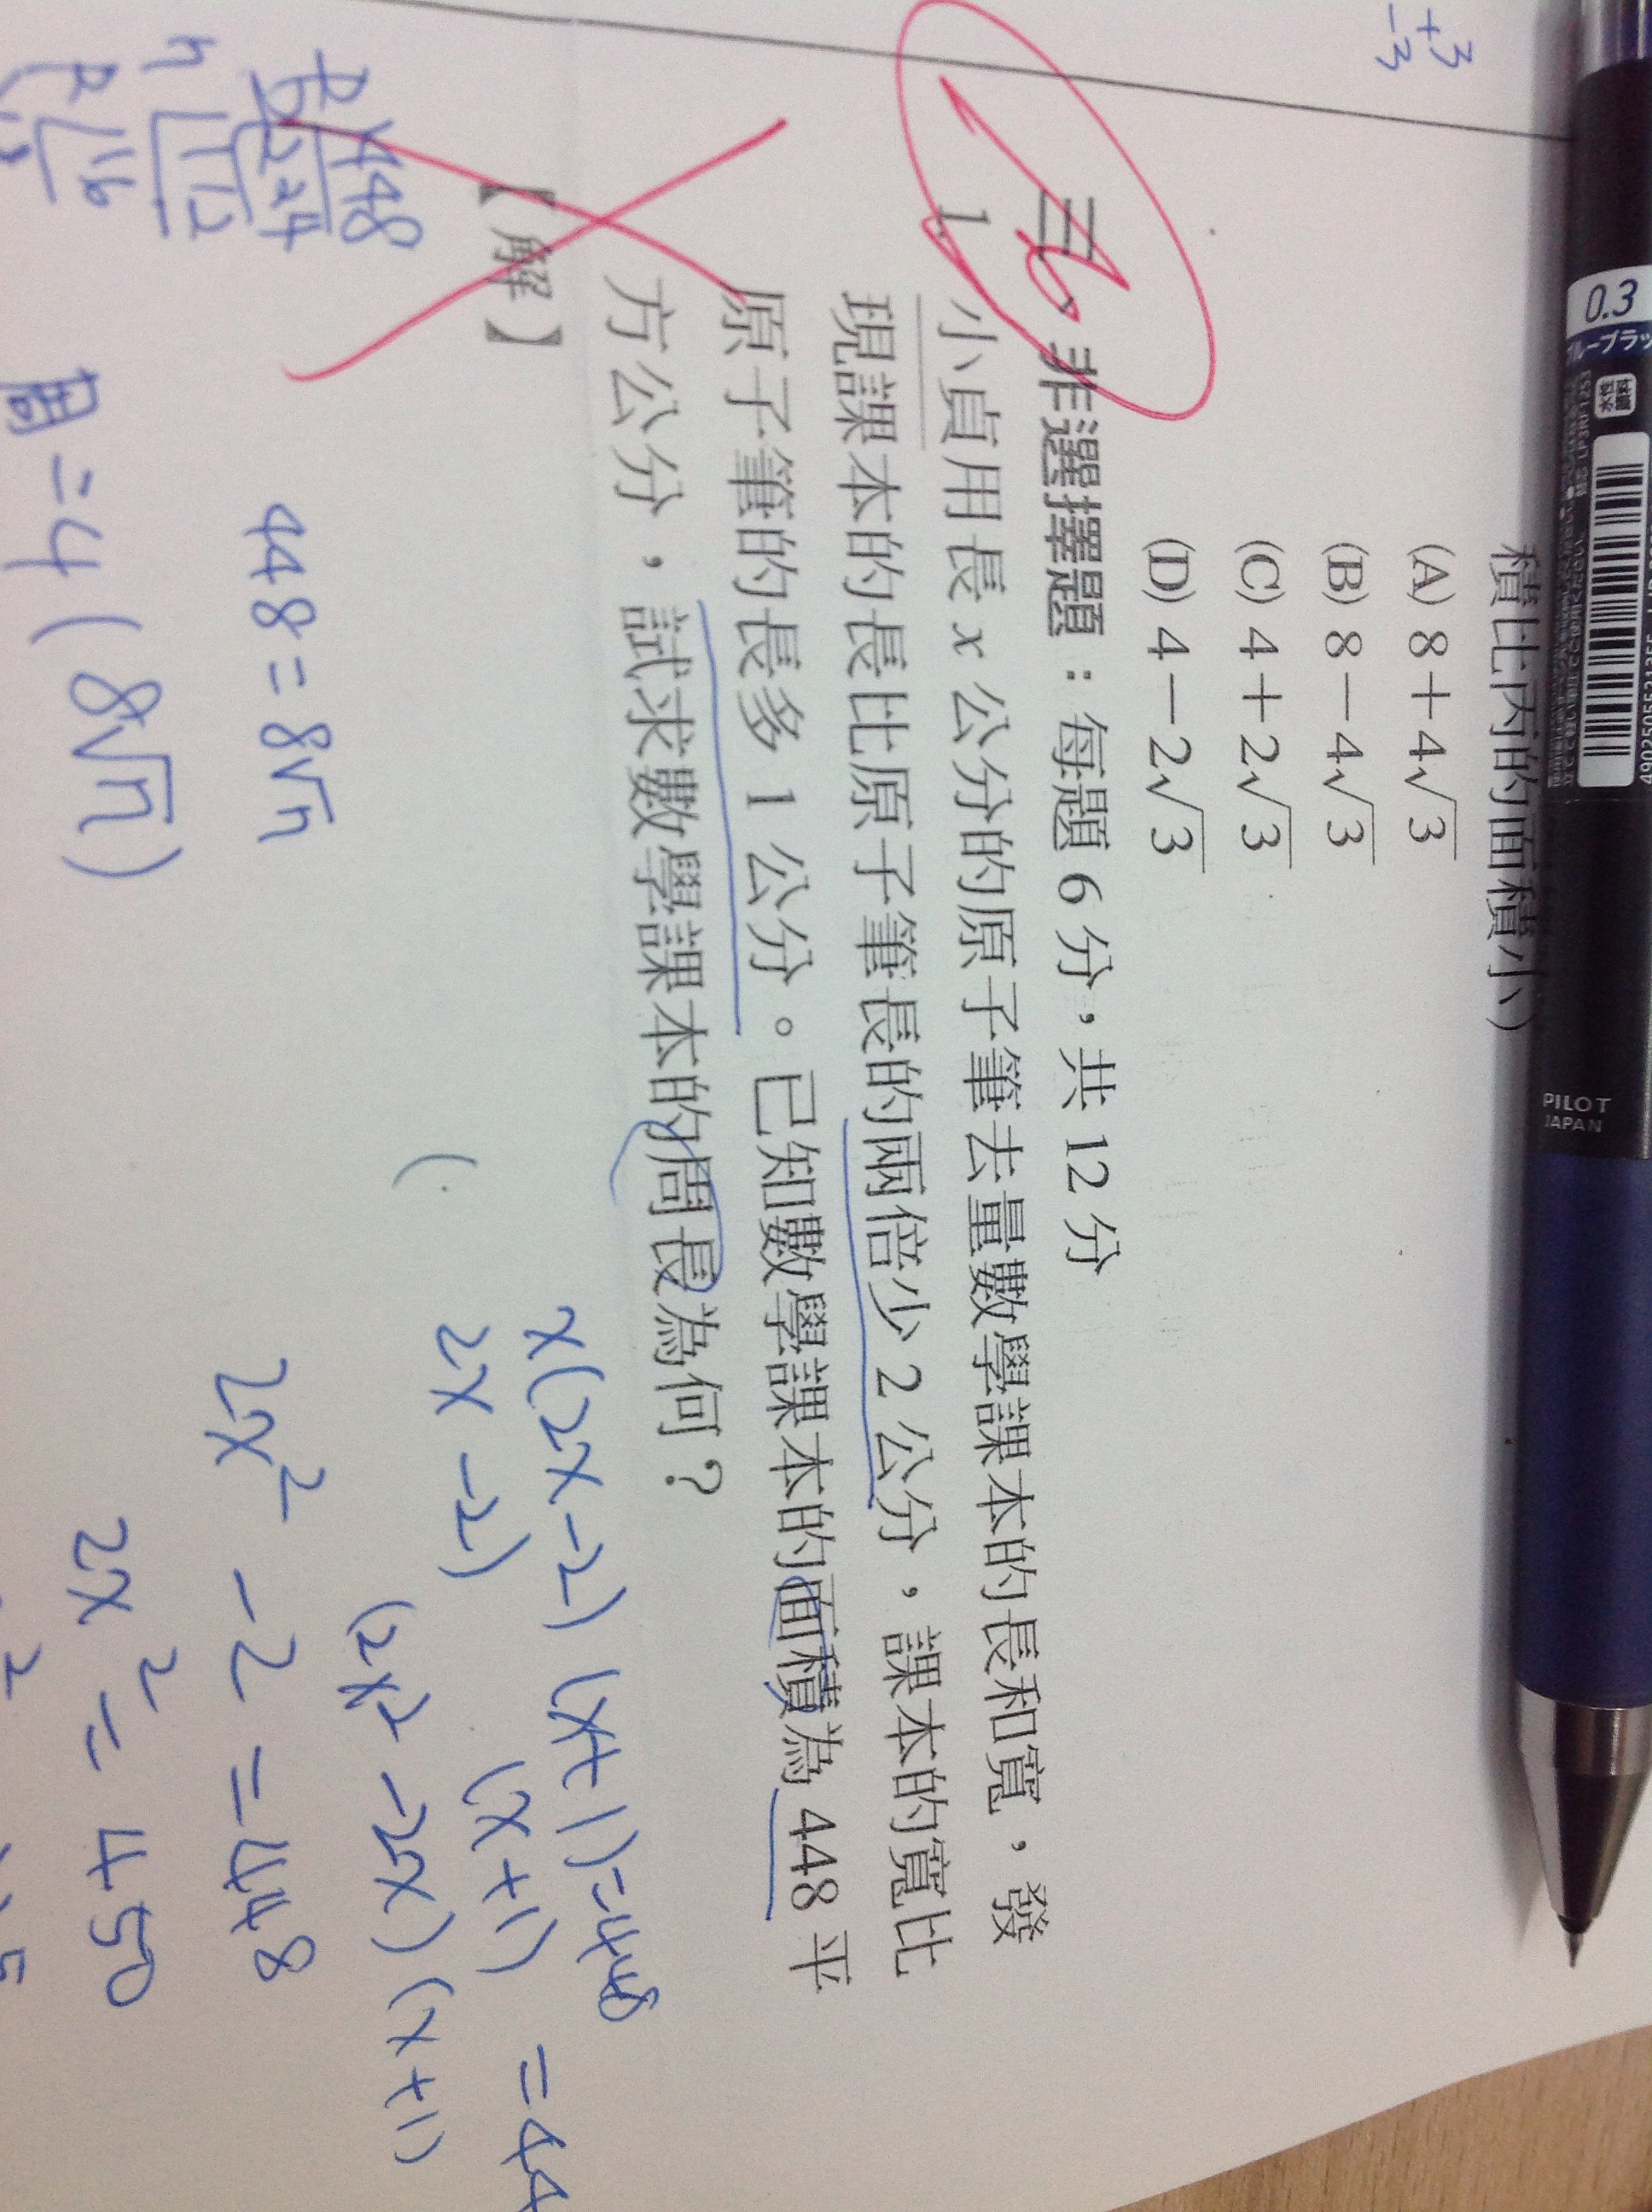 +3
-3
積比丙的面積小）
(A) 8＋4√3
(B) 8－4√3
(C) 4＋2√3
(D) 4－2√3
三、非選擇題：每題 6 分，共 12 分
1. 小貞用長 x 公分的原子筆去量數學課本的長和寬，發
現課本的長比原子筆長的兩倍少 2 公分，課本的寬比
原子筆的長多 1 公分。已知數學課本的面積為 448 平
方公分，試求數學課本的周長為何？
【解】
x(2x-2)(x+1)=448
2x-2)(x+1)=44
(2x²-2x)(x+1)
2x²-2=448
2x²=450
448
224
112
448=8√n
周=4(8√n)
0.3
水性
顔料
PILOT
JAPAN